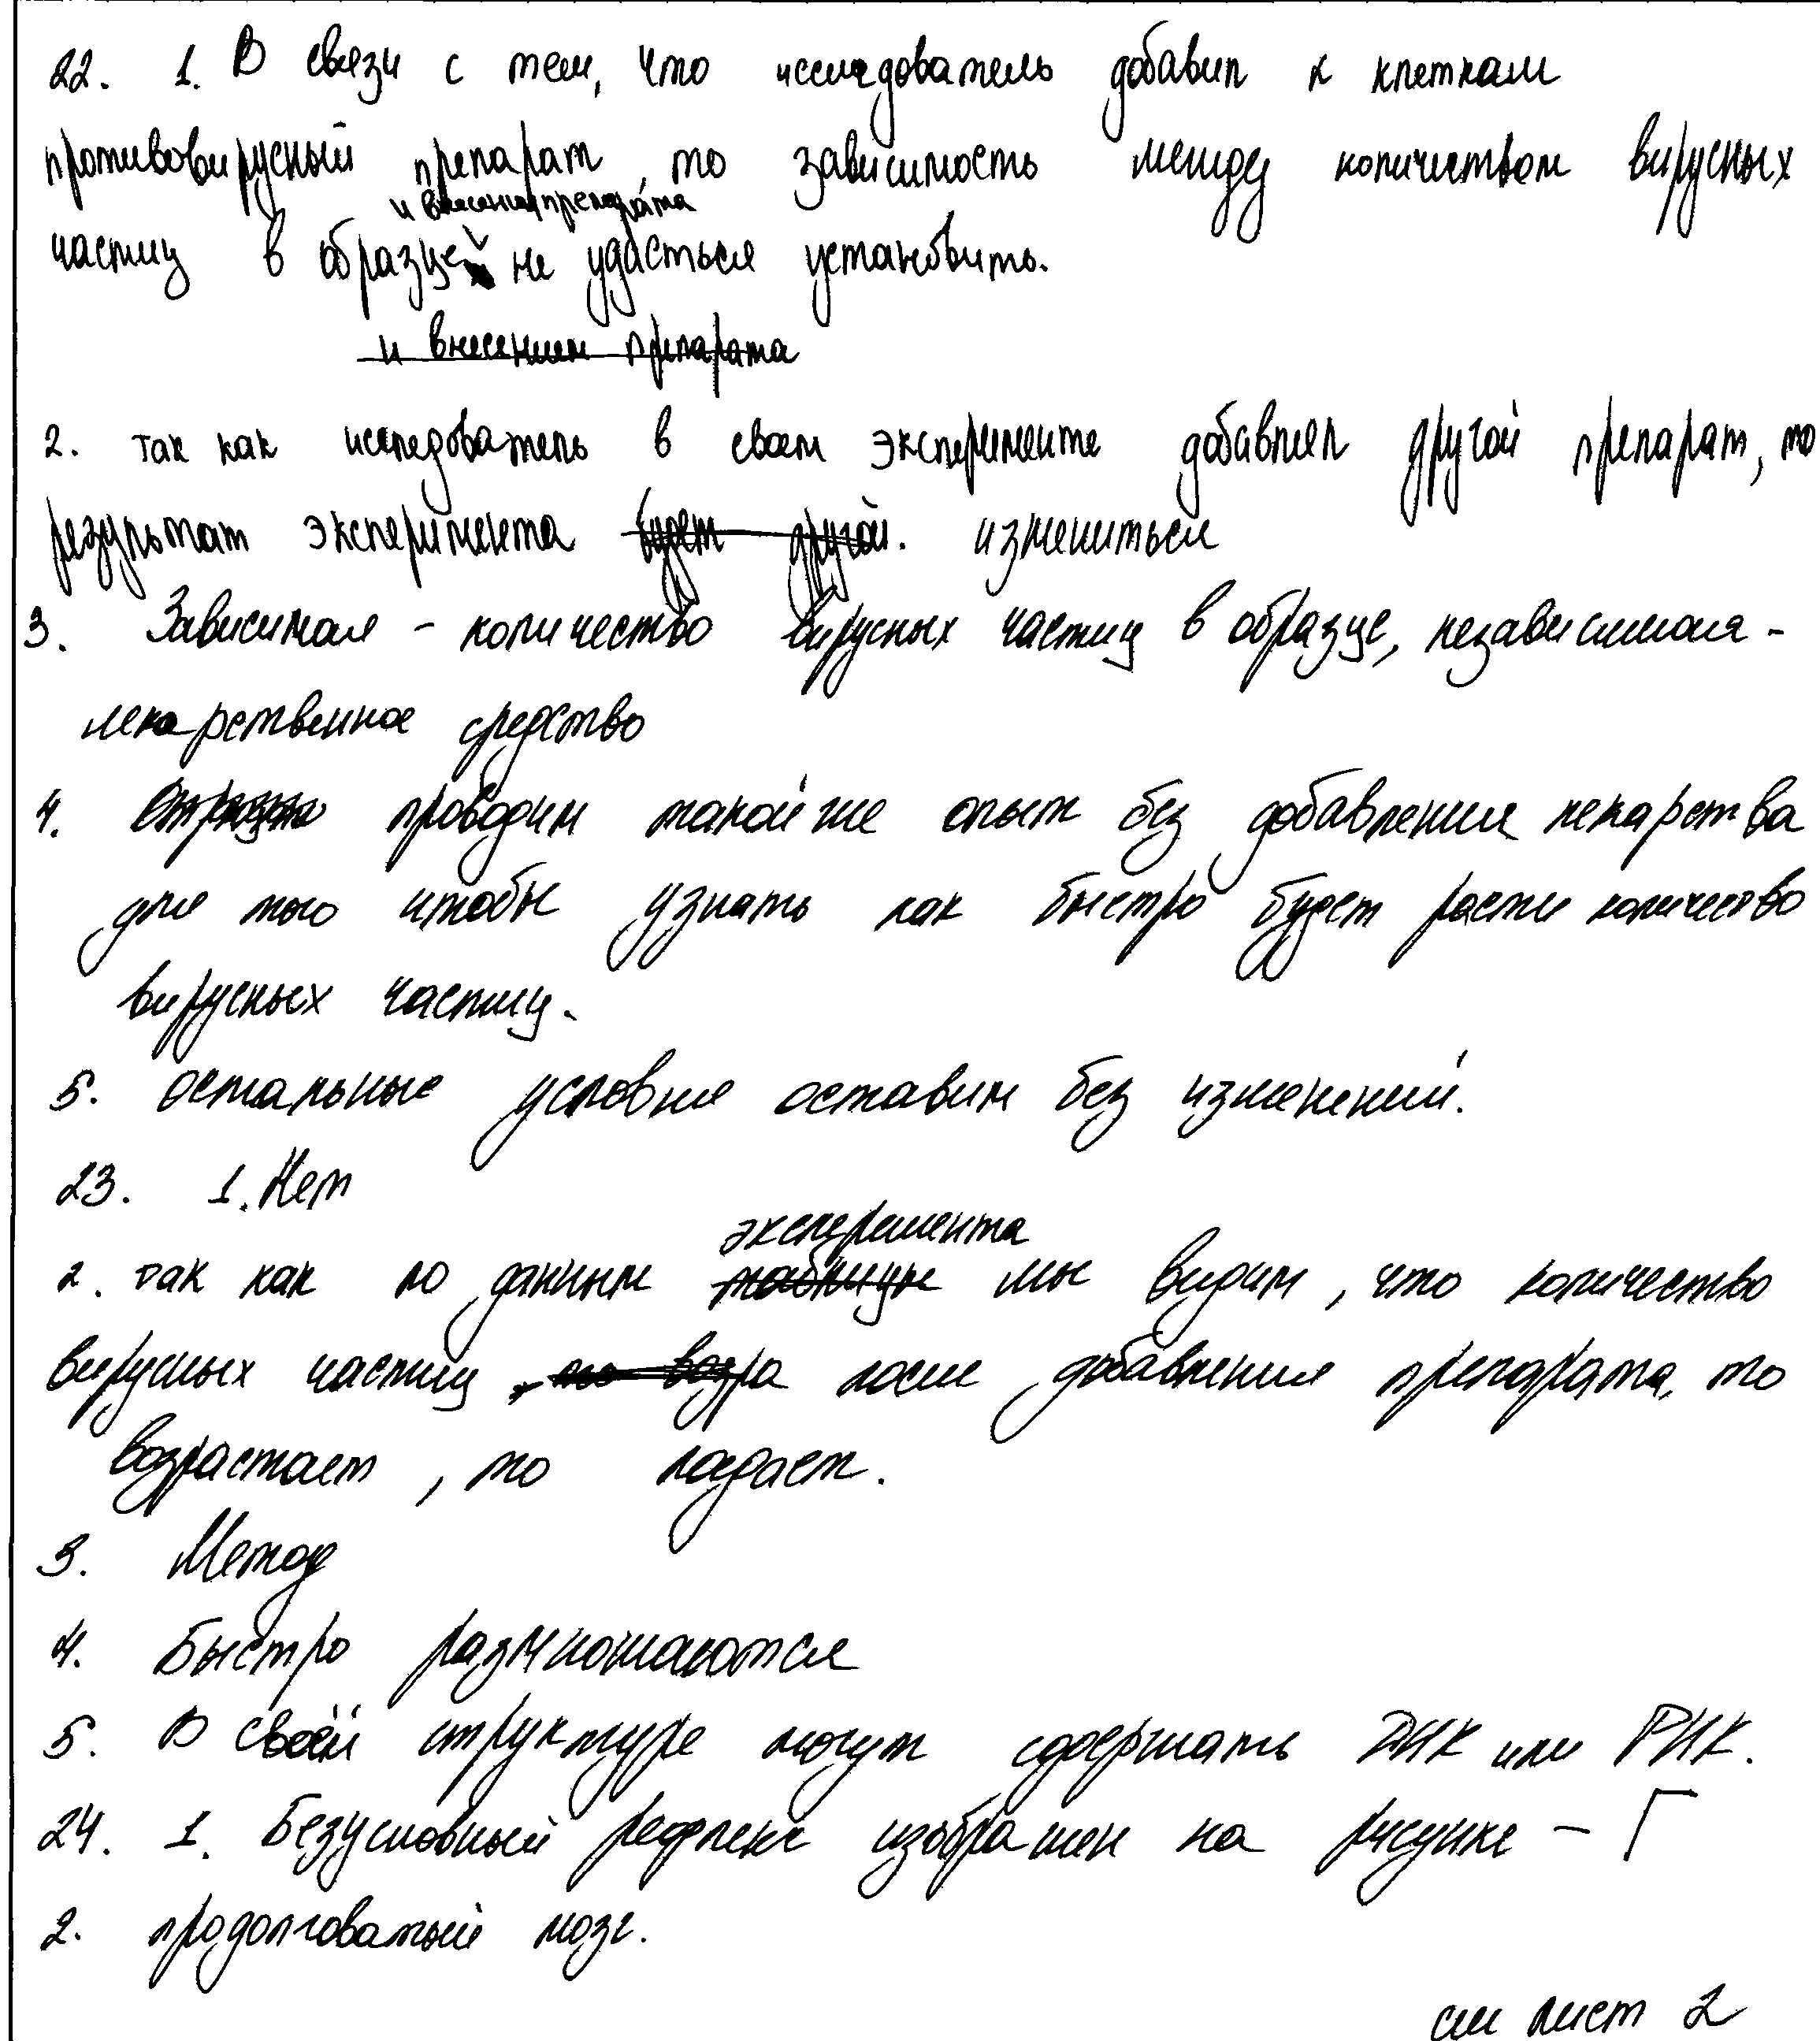 22. 1. В связи с тем, что исследователь добавил к клеткам
противовирусный препарат, то зависимость между количеством вирусных
и внесения препарата
частиц в образце не удасться установить.
и внесением препарата
2. так как исследователь в своем эксперименте добавлял другой препарат, то
результат эксперимента будет другой. измениться
3. Зависимая - количество вирусных частиц в образце, независимая -
лекарственное средство
4. проводим такой же опыт без добавления лекарства
для того чтобы узнать как быстро будет расти количество
вирусных частиц.
5. остальные условия оставим без изменений.
23. 1. Нет
эксперимента
2. так как по данным таблицы мы видим, что количество
вирусных частиц, то возра после добавления препарата, то
возрастает, то падает.
3. Метод
4. Быстро размножаются
5. В своей структуре могут сдоержать ДНК или РНК.
24. 1. Безусловный рефлекс изображен на рисунке - Г
2. продолговатый мозг.
см лист 2